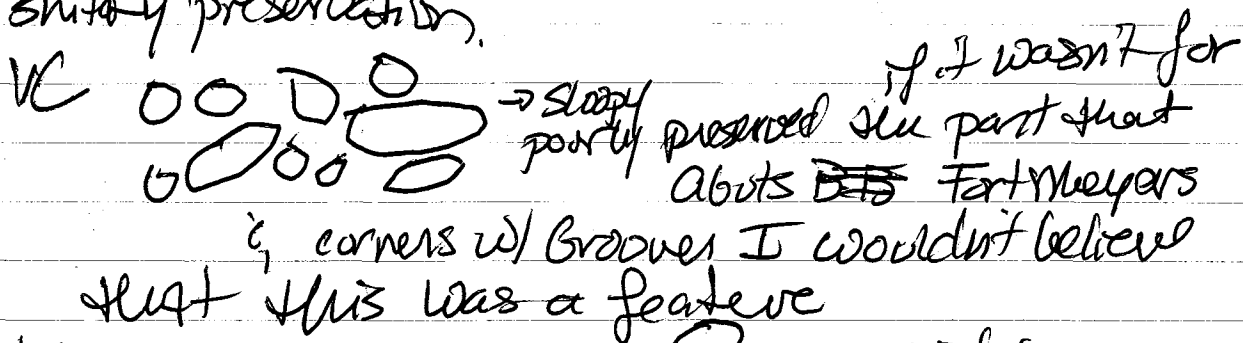 shitty preservation.
VC → Sloopy if it wasn't for
poorly preserved the part that
Abuts Fort Meyers
& corners w/ Groover I wouldn't believe
that this was a feature